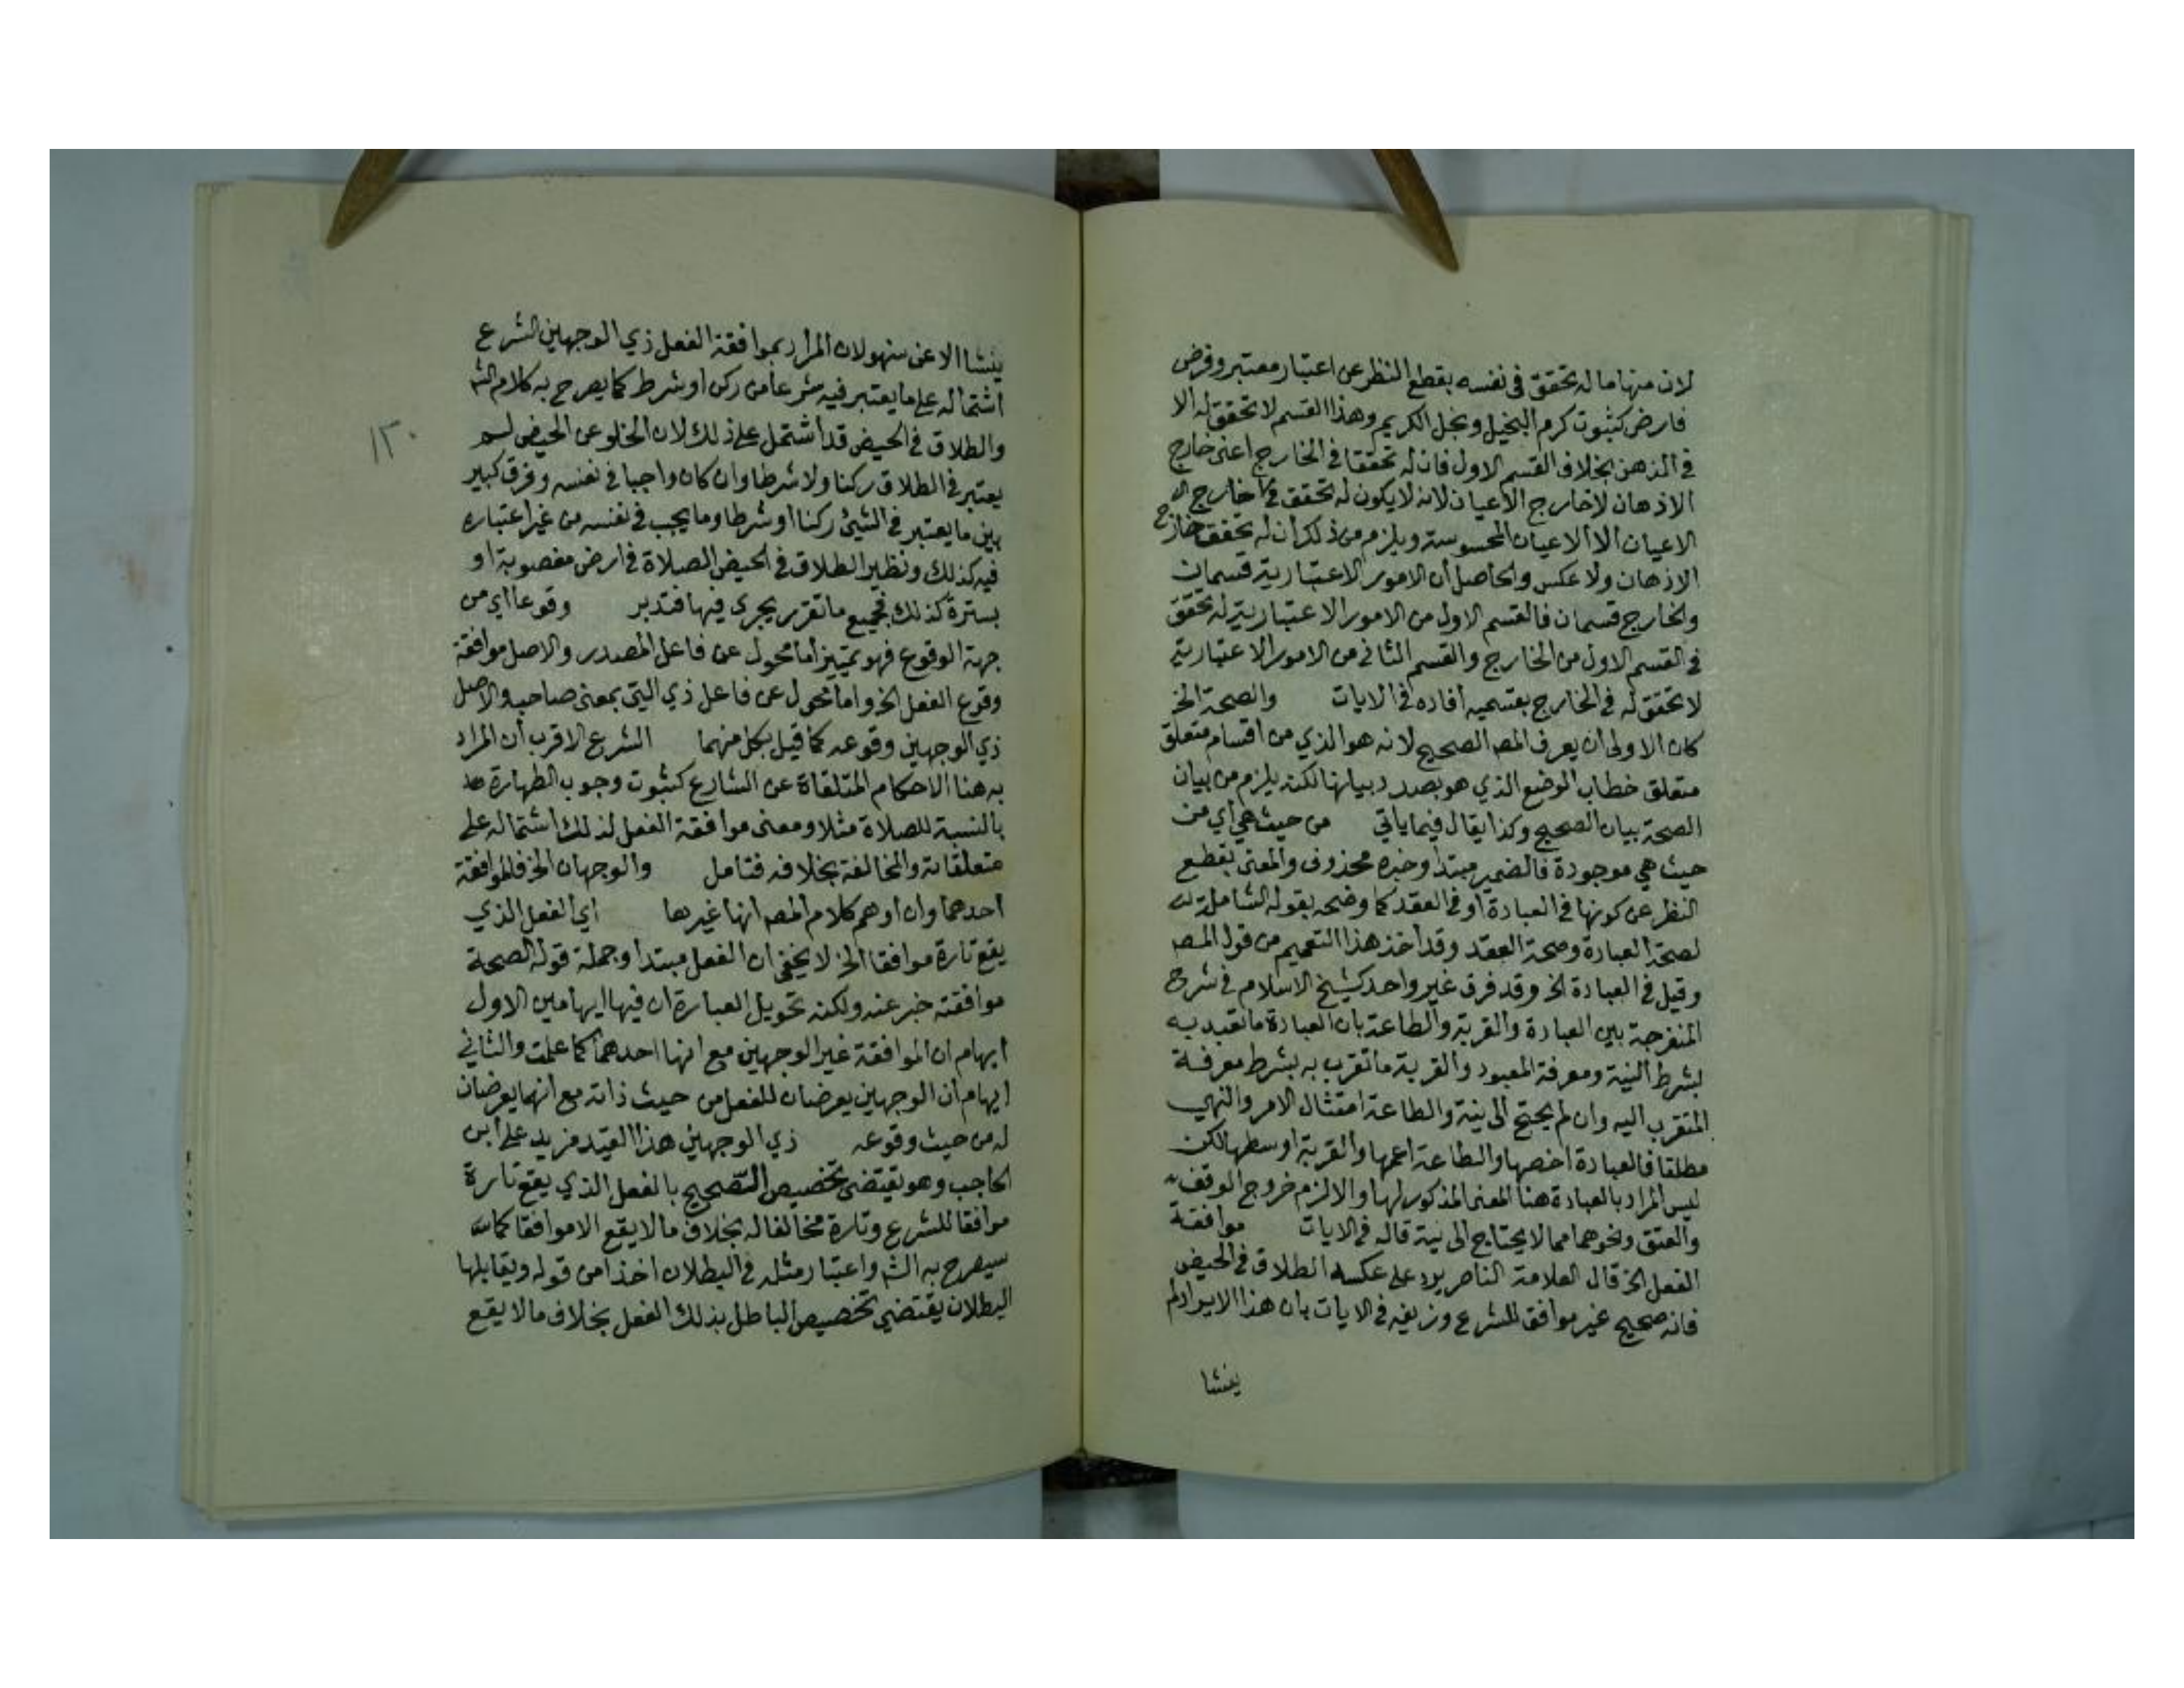 لان منها ما له تحقق في نفسه بقطع النظر عن اعتبار معتبر وفرض
فارض كثبوت كرم البخيل وبخل الكريم وهذا القسم لا تحقق له الا
في الذهن بخلاف القسم الاول فان له تحققا في الخارج اعني خارج
الاذهان لا خارج الاعيان لانه لا يكون له تحقق في خارج
الاعيان الا الاعيان المحسوسة ويلزم من ذلك أن له تحقق خارج
الاذهان ولا عكس والحاصل أن الامور الاعتبارية قسمان
والخارج قسمان فالقسم الاول من الامور الاعتبارية له تحقق
في القسم الاول من الخارج والقسم الثاني من الامور الاعتبارية
لا تحقق له في الخارج بقسميه أفاده في الايات والصحة الخ
كان الاولى أن يعرف المصـ الصحيح لانه هو الذي من اقسام متعلق
متعلق خطاب الوضع الذي هو بصدد بيانها لكنه يلزم من بيان
الصحة بيان الصحيح وكذا يقال فيما ياتي من حيث هي أي من
حيث هي موجودة فالضمير مبتدا وخبره محذوف والمعنى بقطع
النظر عن كونها في العبادة أو في العقد كما وضحه بقوله الشاملة
لصحة العبادة وصحة العقد وقد أخذ هذا التعميم من قول المصـ
وقيل في العبادة الخ وقد فرق غير واحد كشيخ الاسلام في شرح
المنفرجة بين العبادة والقربة والطاعة بان العبادة ما تعبد به
بشرط النية ومعرفة المعبود والقربة ما تقرب به بشرط معرفة
المتقرب اليه وان لم يحتج الى نية والطاعة امتثال الامر والنهي
مطلقا فالعبادة اخصها والطاعة اعمها والقربة اوسطها لكن
ليس المراد بالعبادة هنا المعنى المذكور لها والا لزم خروج الوقف
والعتق ونحوهما مما لا يحتاج الى نية قاله في الايات موافقة
الفعل الخ قال العلامة الناصر يرد على عكسه الطلاق في الحيض
فانه صحيح غير موافق للشرع وزيفه في الايات بان هذا الايراد لم
ينشا
ينشا الا عن سهو لان المراد بموافقة الفعل ذي الوجهين الشرع
اشتماله على ما يعتبر فيه شرعا من ركن او شرط كما يصرح به كلام الشـ
والطلاق في الحيض قد اشتمل على ذلك لان الخلو عن الحيض لم
يعتبر في الطلاق ركنا ولا شرطا وان كان واجبا في نفسه وفرق كبير
بين ما يعتبر في الشيئ ركنا أو شرطا وما يجب في نفسه من غير اعتباره
فيه كذلك ونظير الطلاق في الحيض الصلاة في ارض مغصوبة او
بسترة كذلك فجميع ما تقرر يجري فيها فتدبر وقوعا اي من
جهة الوقوع فهو تمييز أما محول عن فاعل المصدر والاصل موافقة
وقوع الفعل الخ واما محول عن فاعل ذي التي بمعنى صاحب والاصل
ذي الوجهين وقوعه كما قيل بكل منهما الشرع الاقرب أن المراد
به هنا الاحكام المتلقاة عن الشارع كثبوت وجوب الطهارة
بالنسبة للصلاة مثلا ومعنى موافقة الفعل لذلك اشتماله على
متعلقاته والمخالفة بخلافه فتامل والوجهان الخ فالموافقة
احدهما وان اوهم كلام المصـ انها غيرها اي الفعل الذي
يقع تارة موافقا الخ لا يخفى ان الفعل مبتدا وجملة قوله الصحة
موافقته خبر عنه ولكنه تحويل العبارة ان فيها ايهامين الاول
ايهام ان الموافقة غير الوجهين مع انها احدهما كما علمت والثاني
ايهام أن الوجهين يعرضان للفعل من حيث ذاته مع انهما يعرضان
له من حيث وقوعه ذي الوجهين هذا القيد مزيد على ابن
الحاجب وهو يقتضي تخصيص التصحيح بالفعل الذي يقع تارة
موافقا للشرع وتارة مخالفا له بخلاف ما لا يقع الا موافقا كما
سيصرح به الشـ واعتبار مثله في البطلان اخذا من قوله ويقابلها
البطلان يقتضي تخصيص الباطل بذلك الفعل بخلاف ما لا يقع
١٣٠